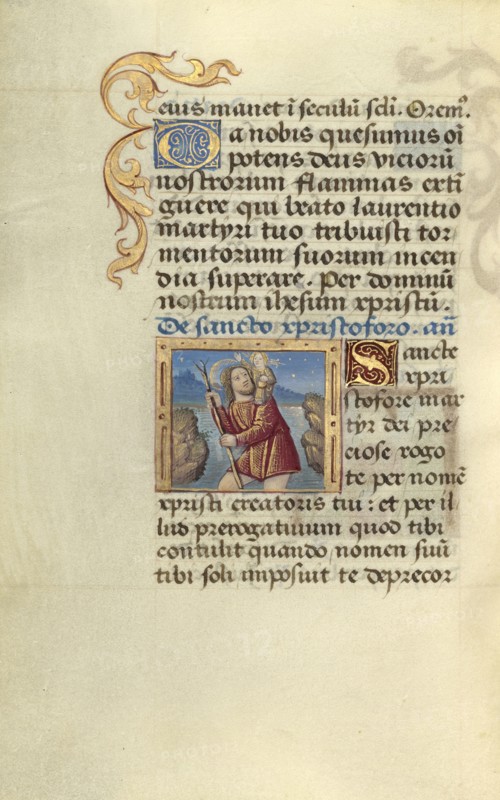 eius manet ī seculū sclī. Orem⁹.
Da nobis quesumus oī
potens deus vicioru̅
nostrorum flammas exti̅
guere qui beato laurentio
martyri tuo tribuisti tor
mentorum suorum incen
dia superare. Per dominu̅
nostrum ihesum xpristu̅.
De sancto xpristoforo. an̅
Sancte
xpri
stofore mar
tyr dei pre
ciose rogo
te per nome̅
xpristi creatoris tui: et per il
lud prerogatiuum quod tibi
contulit quando nomen suu̅
tibi soli imposuit te deprecor